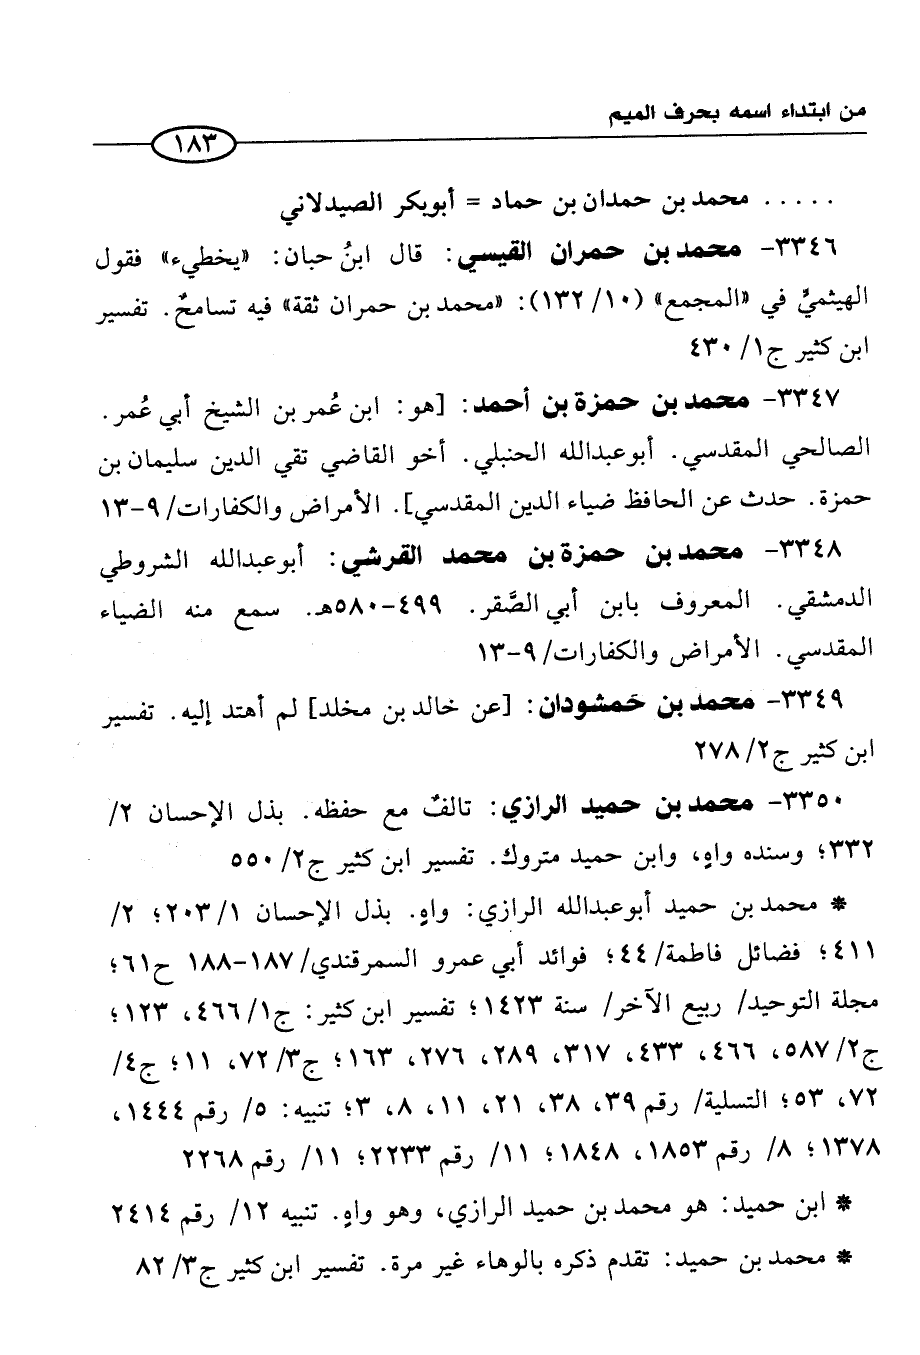 من ابتداء اسمه بحرف الميم
١٨٣
..... محمد بن حمدان بن حماد = أبوبكر الصيدلاني
٣٣٤٦- محمد بن حمران القيسي: قال ابنُ حبان: «يخطيء» فقول
الهيثميِّ في «المجمع» (١٠/ ١٣٢): «محمد بن حمران ثقة» فيه تسامحٌ. تفسير
ابن كثير ج١/ ٤٣٠
٣٣٤٧- محمد بن حمزة بن أحمد: [هو: ابن عُمر بن الشيخ أبي عُمر.
الصالحي المقدسي. أبوعبدالله الحنبلي. أخو القاضي تقي الدين سليمان بن
حمزة. حدث عن الحافظ ضياء الدين المقدسي]. الأمراض والكفارات/ ٩-١٣
٣٣٤٨- محمد بن حمزة بن محمد القرشي: أبوعبدالله الشروطي
الدمشقي. المعروف بابن أبي الصَّقر. ٤٩٩-٥٨٠هـ. سمع منه الضياء
المقدسي. الأمراض والكفارات/ ٩-١٣
٣٣٤٩- محمد بن خَمشودان: [عن خالد بن مخلد] لم أهتد إليه. تفسير
ابن كثير ج٢/ ٢٧٨
٣٣٥٠- محمد بن حميد الرازي: تالفٌ مع حفظه. بذل الإحسان ٢/
٣٣٢؛ وسنده واهٍ، وابن حميد متروك. تفسير ابن كثير ج٢/ ٥٥٠
* محمد بن حميد أبوعبدالله الرازي: واهٍ. بذل الإحسان ١/ ٢٠٣؛ ٢/
٤١١؛ فضائل فاطمة/ ٤٤؛ فوائد أبي عمرو السمرقندي/ ١٨٧-١٨٨ ح٦١؛
مجلة التوحيد/ ربيع الآخر/ سنة ١٤٢٣؛ تفسير ابن كثير: ج١/ ٤٦٦، ١٢٣؛
ج٢/ ٥٨٧، ٤٦٦، ٤٣٣، ٣١٧، ٢٨٩، ٢٧٦، ١٦٣؛ ج٣/ ٧٢، ١١؛ ج٤/
٧٢، ٥٣؛ التسلية/ رقم ٣٩، ٣٨، ٢١، ١١، ٨، ٣؛ تنبيه: ٥/ رقم ١٤٤٤،
١٣٧٨؛ ٨/ رقم ١٨٥٣، ١٨٤٨؛ ١١/ رقم ٢٢٣٣؛ ١١/ رقم ٢٢٦٨
* ابن حميد: هو محمد بن حميد الرازي، وهو واهٍ. تنبيه ١٢/ رقم ٢٤١٤
* محمد بن حميد: تقدم ذكره بالوهاء غير مرة. تفسير ابن كثير ج٣/ ٨٢